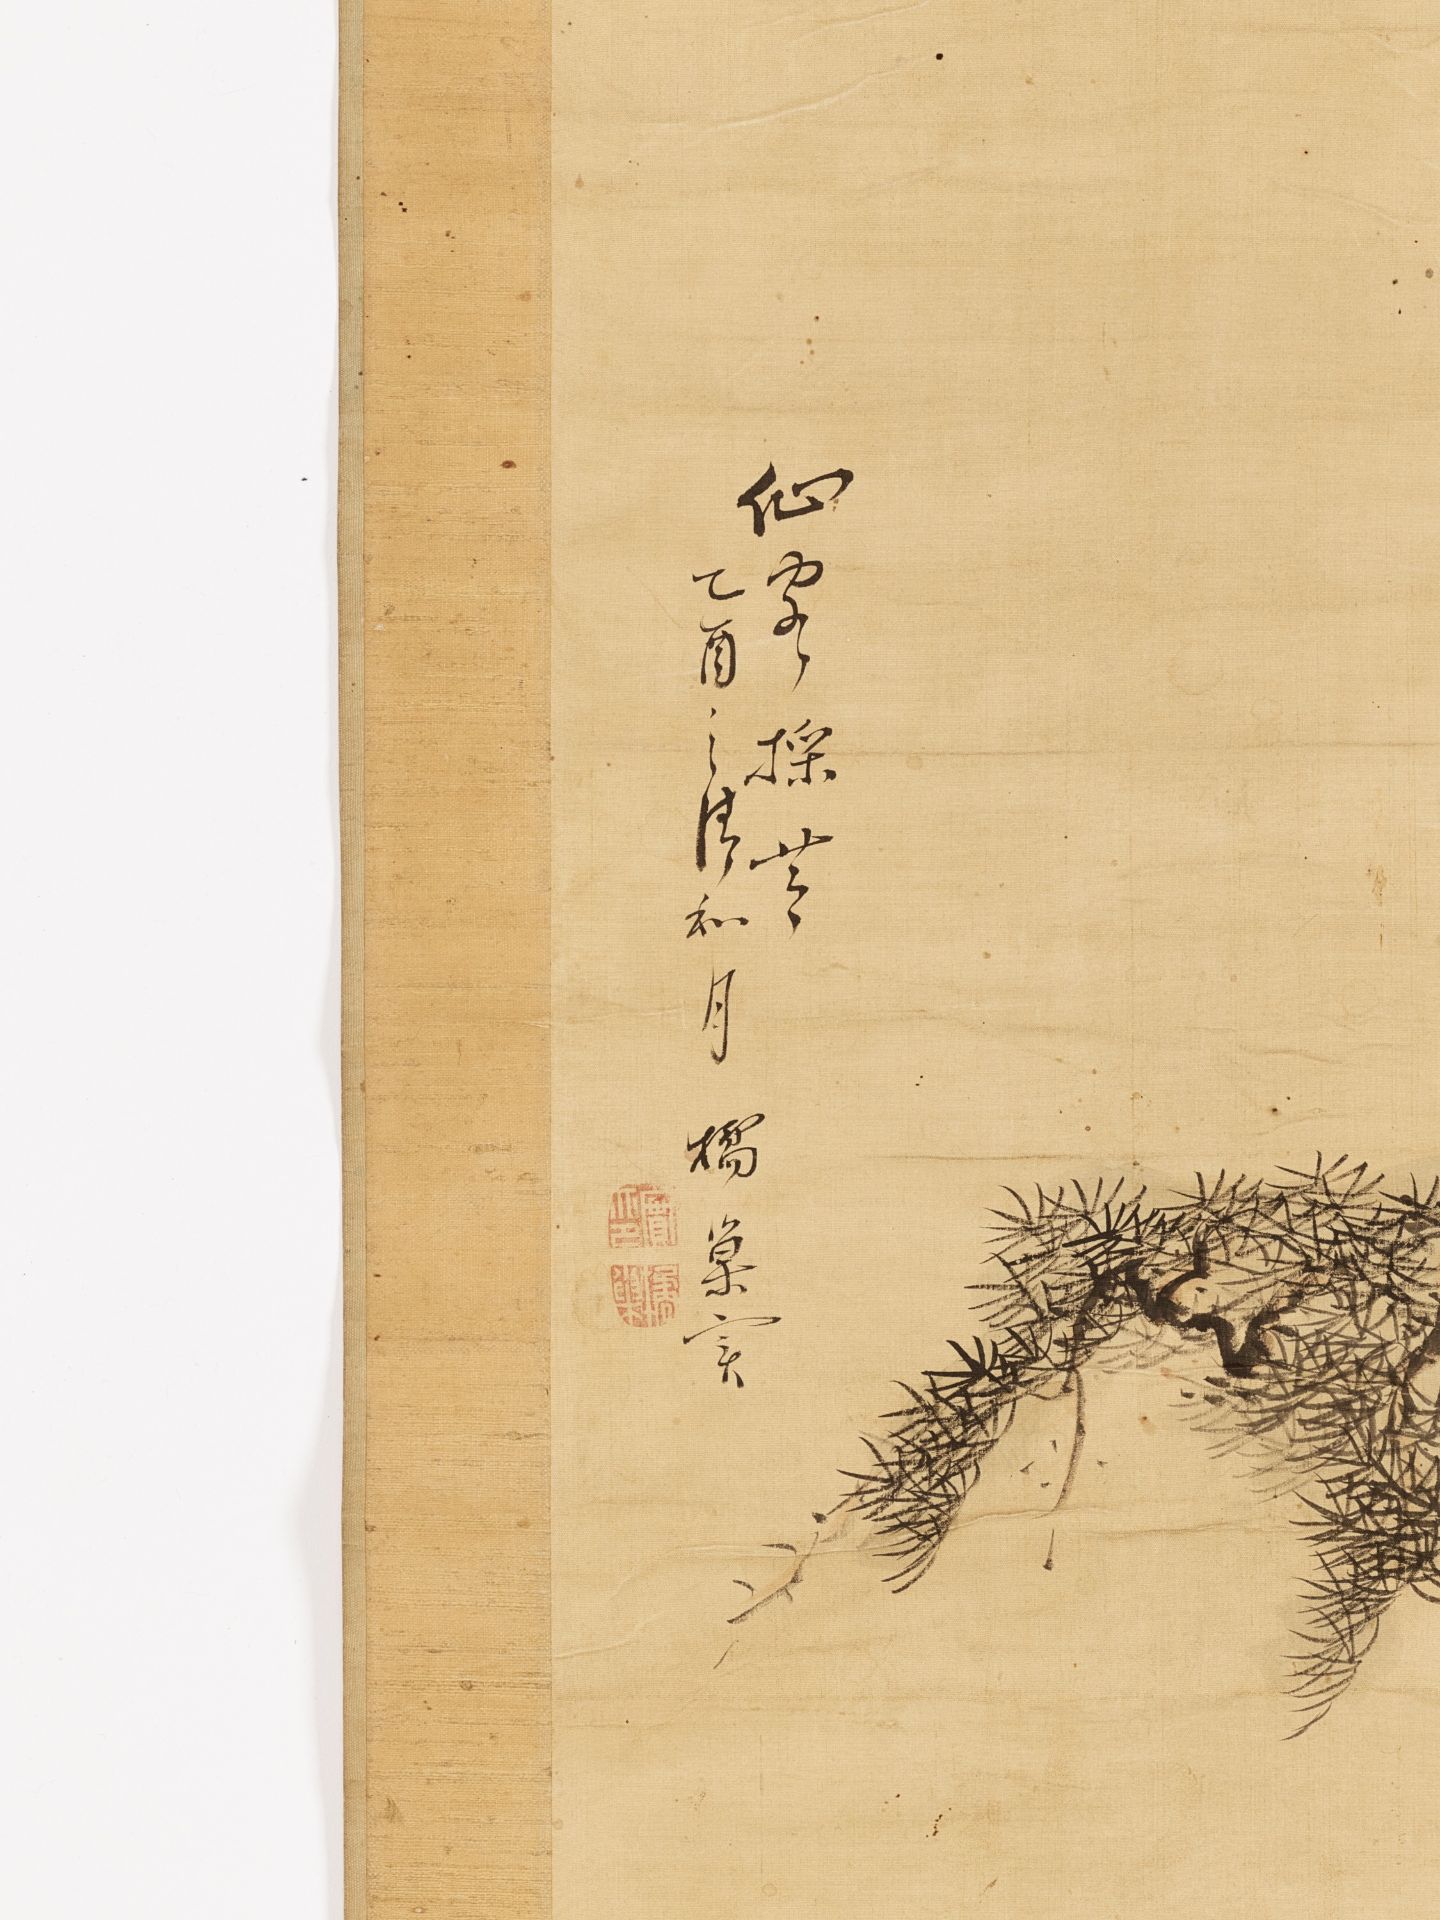 仙客採芝
乙酉之清和月 橘巣寫